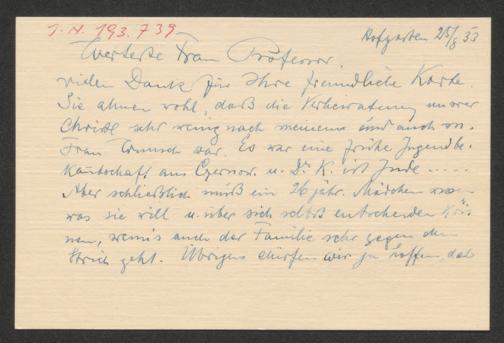 I.N. 193.739
Hofgastein 25/8 33
Verehrte Frau Professor.
vielen Dank für Ihre freundliche Karte.
Sie ahnen wohl, daß die Verheiratung unserer
Christl sehr wenig nach meinem und auch m.
Frau Wunsch war. Es war eine frühe Jugendbe-
kanntschaft aus Czernow. u. Dr. K. ist Jude .....
Aber schließlich muß ein 26 jähr. Mädchen
was sie will u. über sich selbst entscheiden kön-
nen, wenn's auch der Familie sehr gegen den
Strich geht. Übrigens dürfen wir ja hoffen, daß